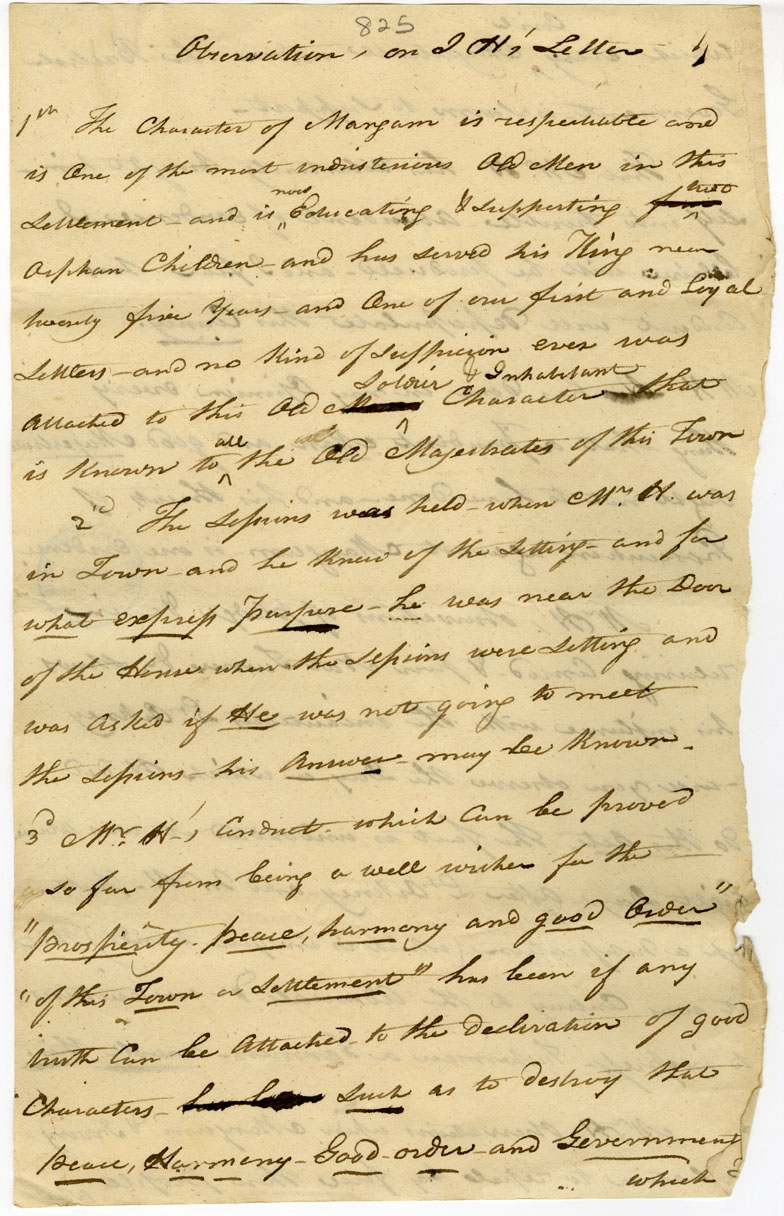 825
Observation, on I H's Letter
1th The Character of Mangam is respectable and
is One of the most industerious Old Men in this
now two
Settlement - and is Educating & Supporting
Orphan Children - and has served his King near
twenty five Years - and One of our first and Loyal
Settlers - and no Kind of Suspicion ever was
Soldier & Inhabitant
Attached to this Old Character that
all
is Known to the Old Majestrates of this Town
2d The Sessions was held - when Mr. H. was
in Town - and he Knew of the Setting - and for
what express Purpose - he was near the Door
of the House when the Sessions were Setting and
was Asked if He was not going to meet
the Sessions - his Answer - may be Known -
3d Mr. H's Conduct - which Can be proved
so far from being a well wisher for the
"Prosperity - peace, harmony and good Order"
"of this Town or Settlement" has been if any
truth Can be Attached to the decliration of good
Characters - Such as to destroy that
Peace, Harmony - Good order - and Government
which